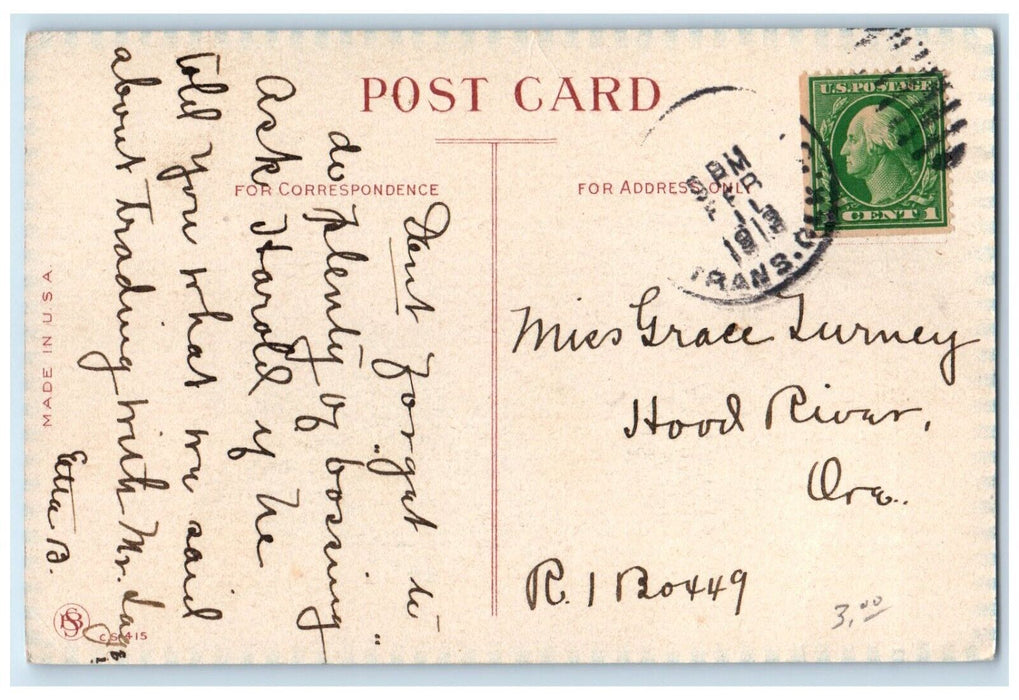 POST CARD
FOR CORRESPONDENCE
FOR ADDRESS ONLY
U.S. POSTAGE
CENT 1
SEP 11
1913
TRANS. CLK.
Dont forget to
do plenty of "bossing"
Ask Harold if he
told you what we said
about trading with Mr.
Etta B.
Miss Grace Turney
Hood River,
Ore.
R. 1 Box 449
3.00
MADE IN U.S.A.
C.S. 415